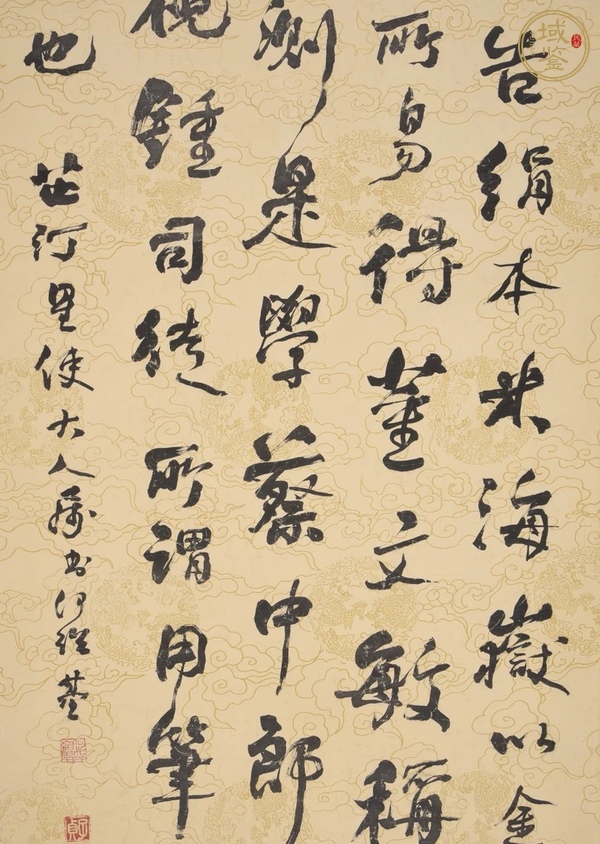 告绢本米海嶽以金
所易得董文敏稱
測是學蔡中郎
鍾司徒所謂用筆
也
芷汀星使大人屬書何紹基
域鉴